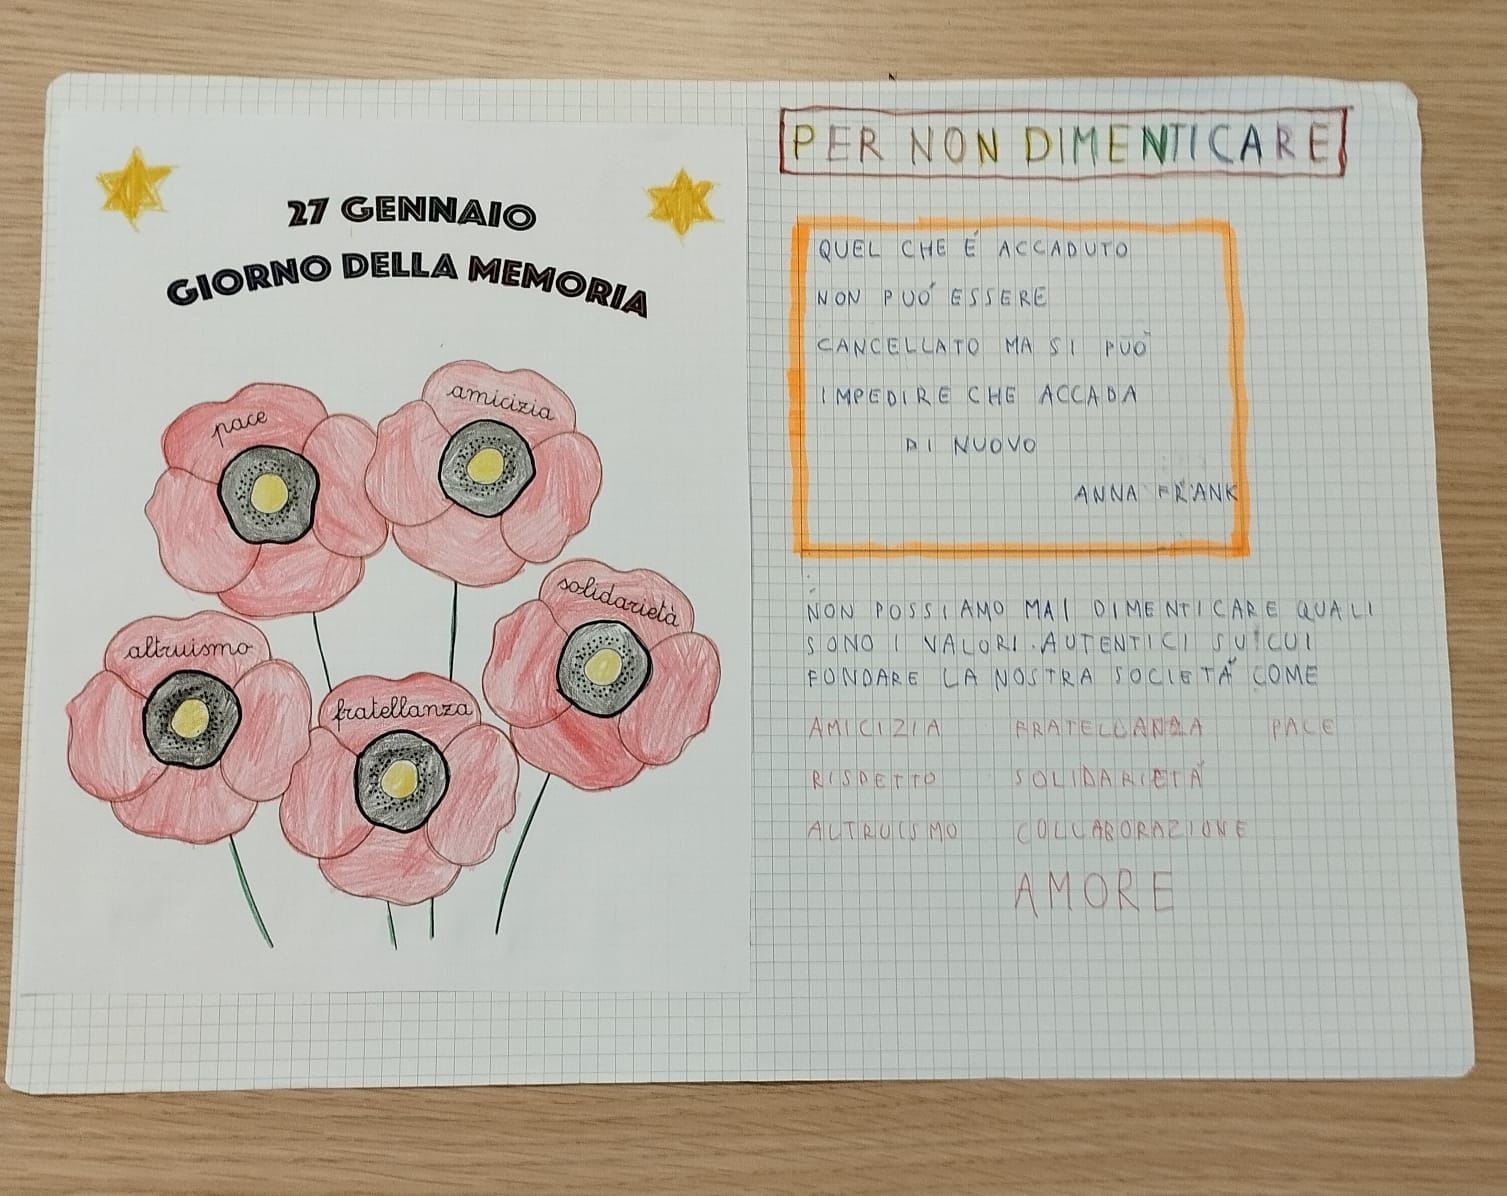 27 GENNAIO
GIORNO DELLA MEMORIA
pace
amicizia
solidarietà
altruismo
fratellanza
PER NON DIMENTICARE
QUEL CHE É ACCADUTO
NON PUÓ ESSERE
CANCELLATO MA SI PUÒ
IMPEDIRE CHE ACCADA
DI NUOVO
ANNA FRANK
NON POSSIAMO MAI DIMENTICARE QUALI
SONO I VALORI AUTENTICI SU CUI
FONDARE LA NOSTRA SOCIETÁ COME
AMICIZIA FRATELLANZA PACE
RISPETTO SOLIDARIETÁ
ALTRUISMO COLLABORAZIONE
AMORE